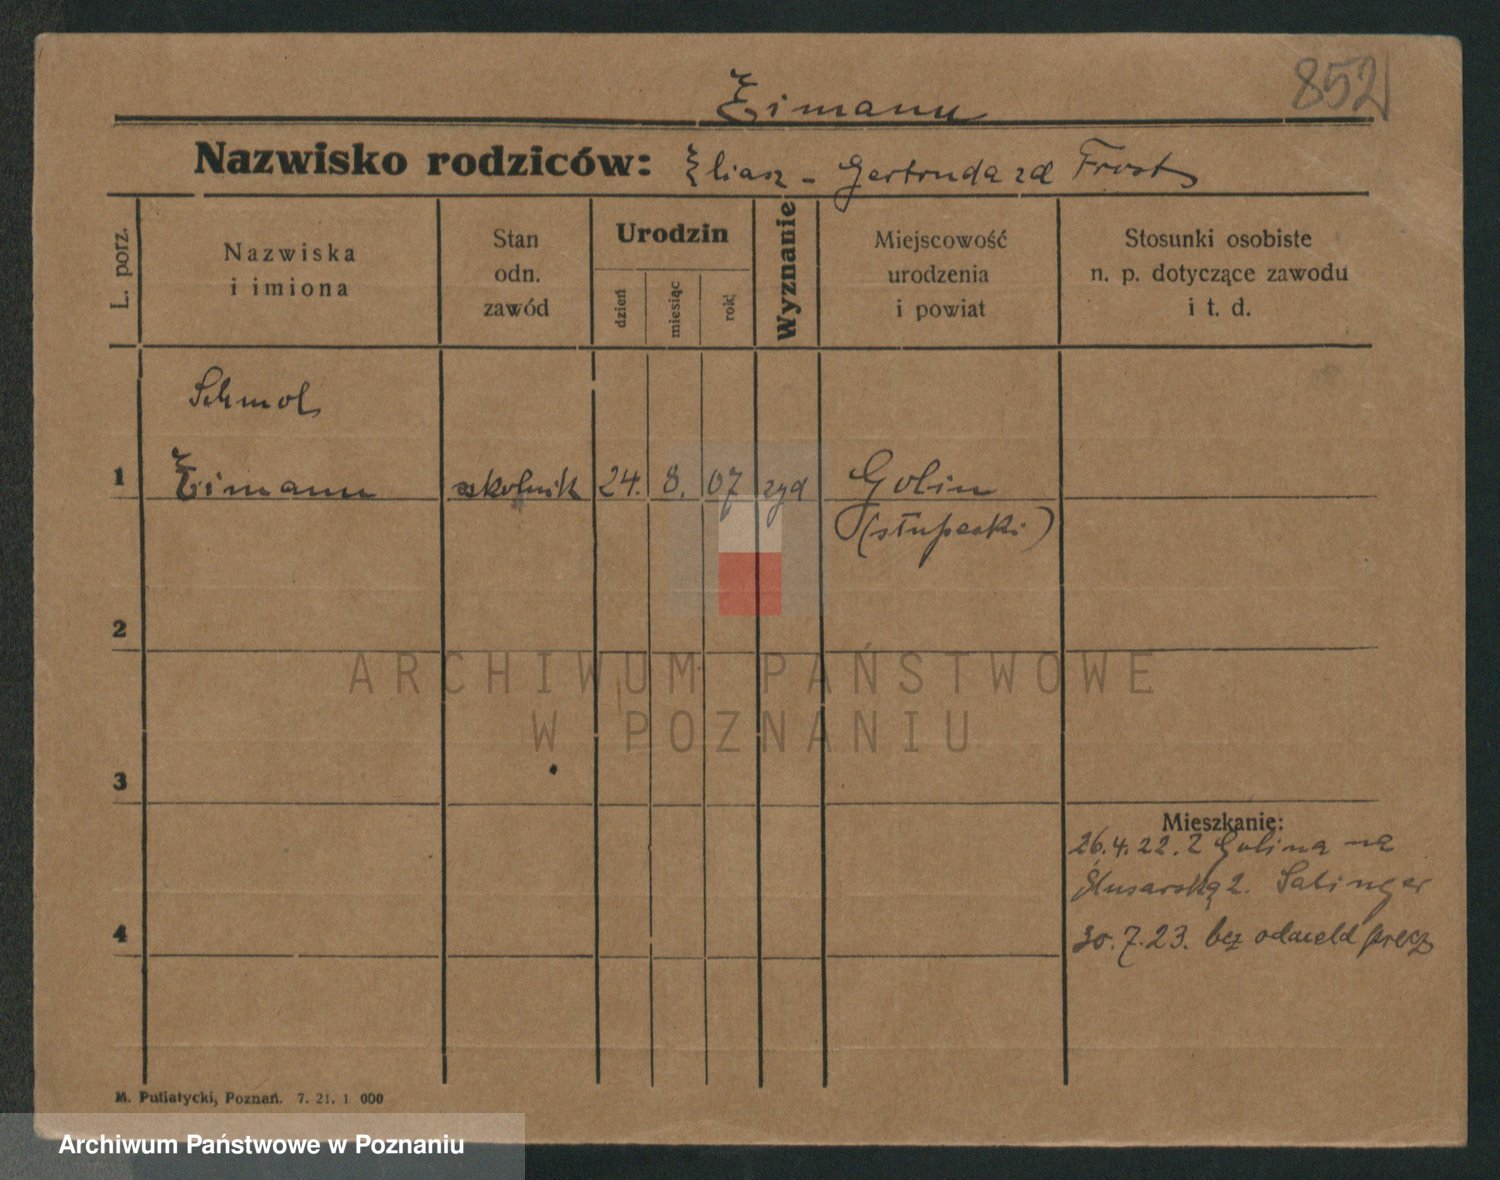 852
Zimann
Nazwisko rodziców: Eliasz - Gertruda zd Frost
L. porz.
Nazwiska
i imiona
Stan
odn.
zawód
Urodzin
dzień
miesiąc
rok
Wyznanie
Miejscowość
urodzenia
i powiat
Stosunki osobiste
n. p. dotyczące zawodu
i t. d.
Schmol
1 Zimann szkolnik 24. 8. 07 zyd Golin
(słupecki)
2
ARCHIWUM PAŃSTWOWE
W POZNANIU
3
Mieszkanie:
26.4.22. z Golina na
Ślusarską 2. Salinger
4 30.7.23. bez odmeld precz
M. Putiatycki, Poznań. 7. 21. 1 000
Archiwum Państwowe w Poznaniu